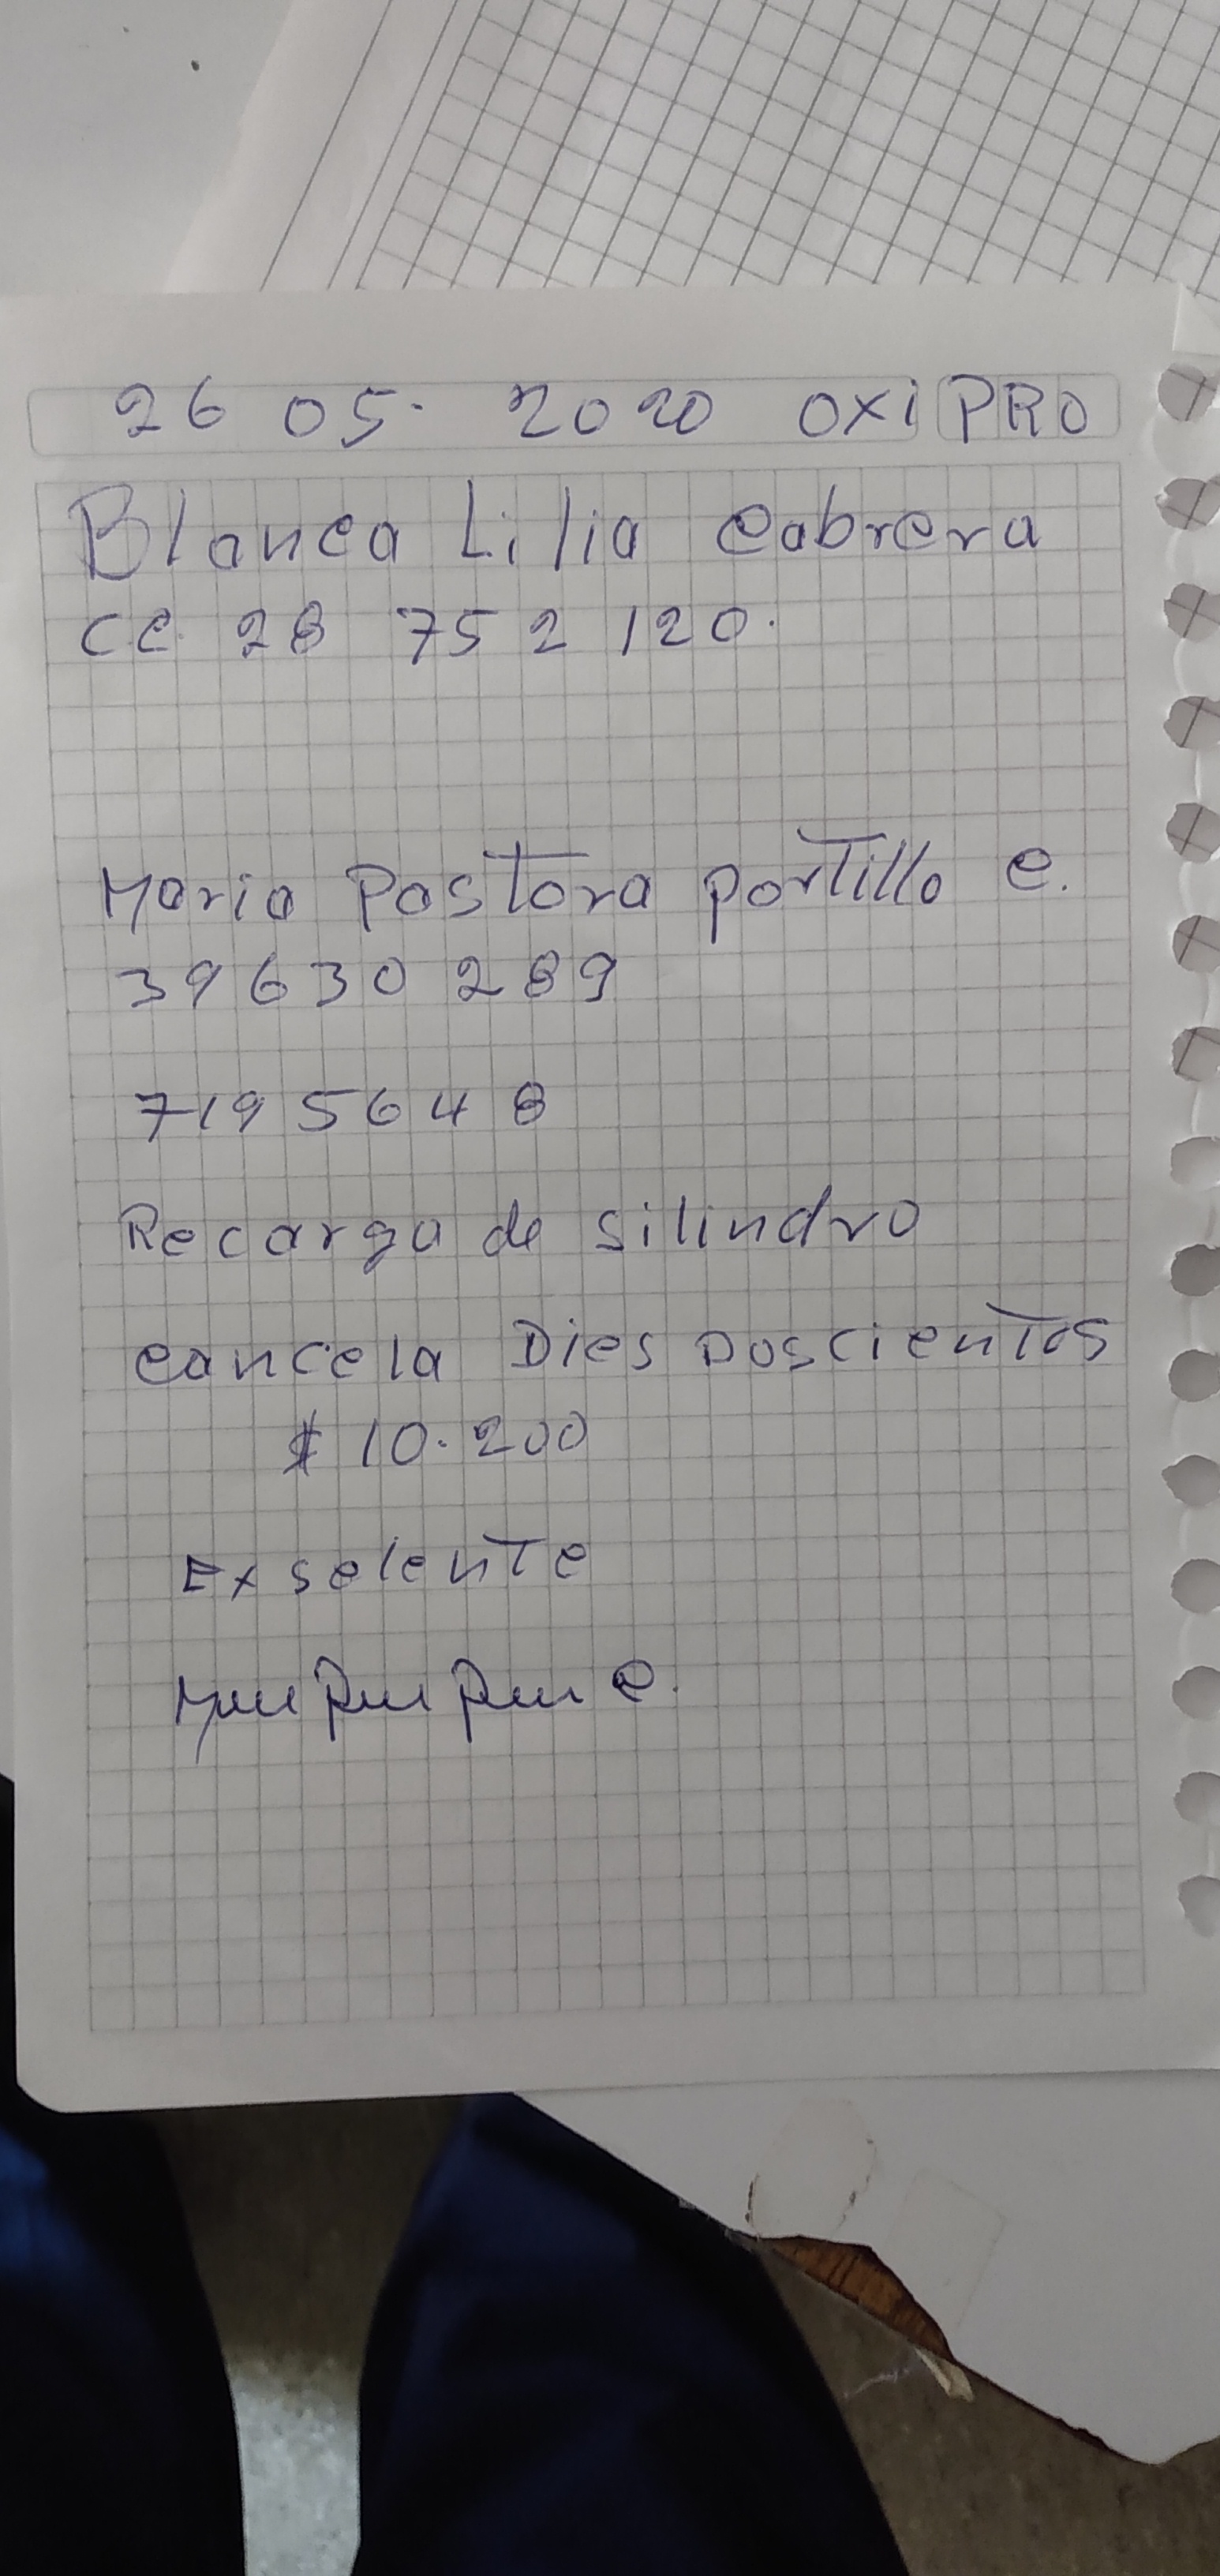 26 05. 2020 OXiPRO
Blanca Lilia Cabrera
CC. 28 752 120.
Maria Pastora portillo C.
39630 289
7195648
Recarga de silindro
cancela Dies Doscientos
$ 10.200
Exselente